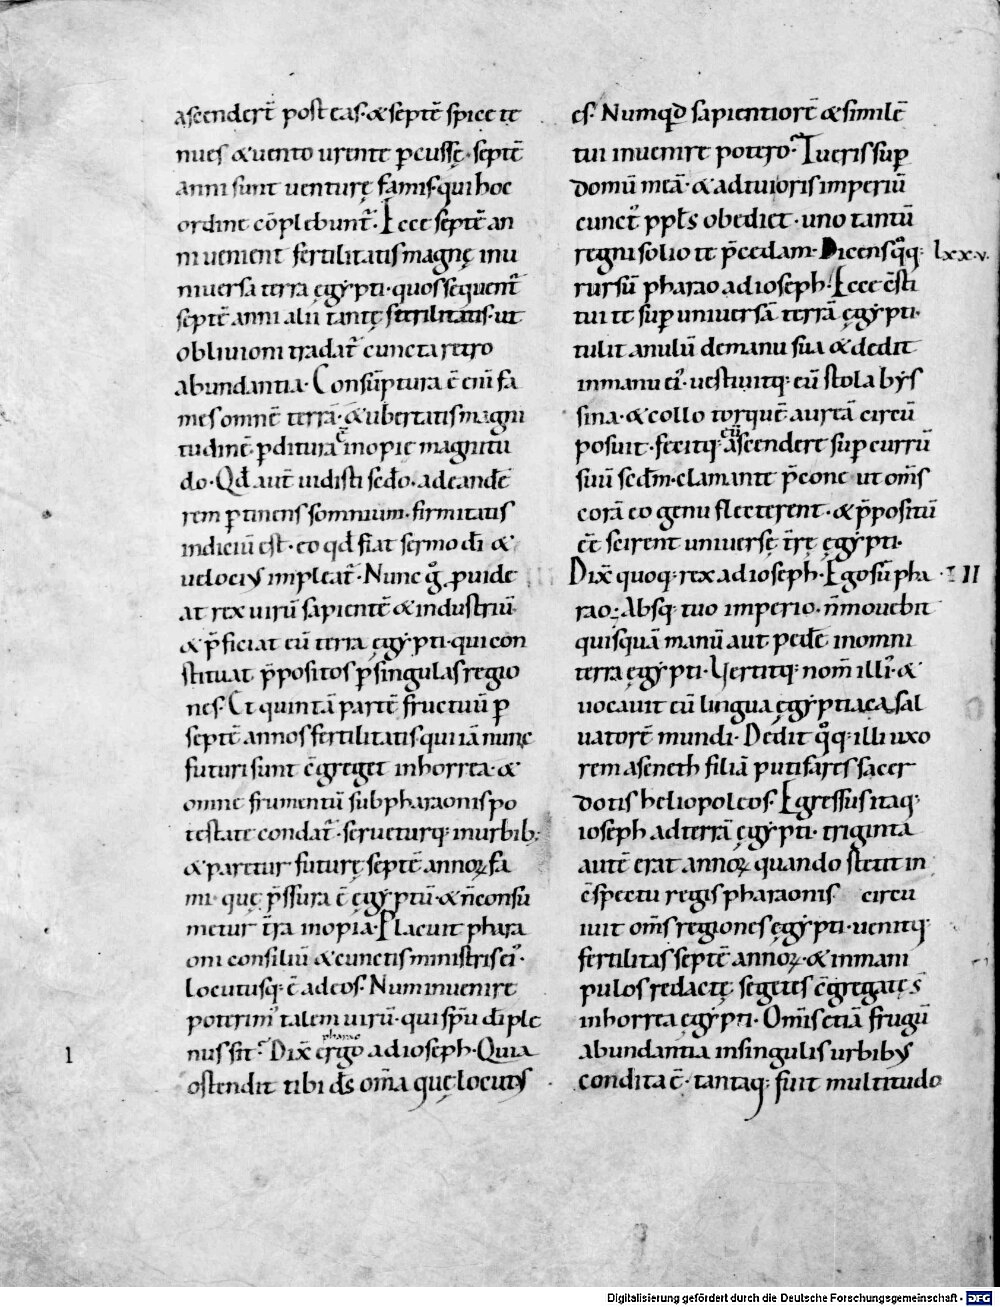 ascender̄t post eas· & septē spice te
nues & uento urente p̄cussę· septē
anni sunt uenturę famis· qui hoc
ordine cōplebunt̄· Ecce septē an
ni uenient fertilitatis magnę in u
niuersa terra ęgẏpti· quos sequent̄
septē anni alii tantę sterilitatis· ut
obliuioni tradat̄ cuncta retro
abundantia· Consūptura ē eni fa
mes omnē terrā· & ubertatis magni
tudinē p̄ditura ē inopię magnitu
do· Qd̄ aut̄ uidisti sed̄o· ad eande
rem p̄tinens somnium· firmitatis
indiciū est· eo qd̄ fiat sermo d̄i &
uelociꝰ impleat̄· Nunc g̊ p̄uide
at rex uirū sapientē & industriū·
& p̄ficiat eū terra ęgẏpti· qui con
stituat p̄positos p̄ singulas regio
nes· Et quintā partē fructuū p̄
septē annos fertilitatis· qui iā nunc
futuri sunt c̄greget in horrea· &
omne frumentū sub pharaonis po
testate condat̄· seruetur q; in urbib;
& paretur futurę septē annoꝝ fa
mi· quę p̄ssura ē ęgẏptū· & n̄ consū
metur t̄ra inopia· Placuit phara
oni consiliū & cunctis ministris ei᾿·
Locutusq; ē ad eos· Num inuenire
poterim᾿ talem uirū· qui spū d̄i ple
nus sit· Dix̄ ergo pharao ad ioseph· Quia
ostendit tibi d̄s om̄a quę locutꝰ
es· Numqd̄ sapientiorē & similē
tui inuenire potero· Tu eris sup̄
domū meā· & ad tui oris imperiū
cunct᾿ pp̄ls obediet· uno tantū
regni solio te p̄cedam· Dicensq̊q;
lxxv·
rursū pharao ad ioseph· Ecce c̄sti
tui te sup̄ uniuersā terrā ęgẏpti·
tulit anulū de manu sua & dedit
in manu ei᾿· uestiuitq; eū stola bẏs
sina· & collo torquē aureā circū
posuit· fecitq; eū ascendere sup̄ currū
suū sed̄m· clamante p̄cone ut om̄s
corā eo genu flecterent· & p̄positū
eē scirent uniuersę t̄rę ęgẏpti·
Dix̄ quoq; rex ad ioseph· Ego sū pha
III
rao; Absq; tuo imperio· n̄ mouebit
quisquā manū aut pedē in omni
terra ęgẏpti· Vertitq; nom̄ illi᾿· &
uocauit eū lingua ęgẏptiaca sal
uatorē mundi· Dedit q̊q; illi uxo
rem aseneth filiā putifares sacer
dotis heliopoleos· Egressus itaq;
ioseph ad terrā ęgẏpti· triginta
autē erat annoꝝ quando stetit in
c̄spectu regis pharaonis circu
iuit om̄s regiones ęgẏpti· uenitq;
fertilitas septē annoꝝ· & in mani
pulos redactę segetes c̄gregatę s̄
in horrea ęgẏpti· Om̄is etiā frugū
abundantia in singulis urbibꝰ
condita ē· tantaq; fuit multitudo
1
Digitalisierung gefördert durch die Deutsche Forschungsgemeinschaft - DFG